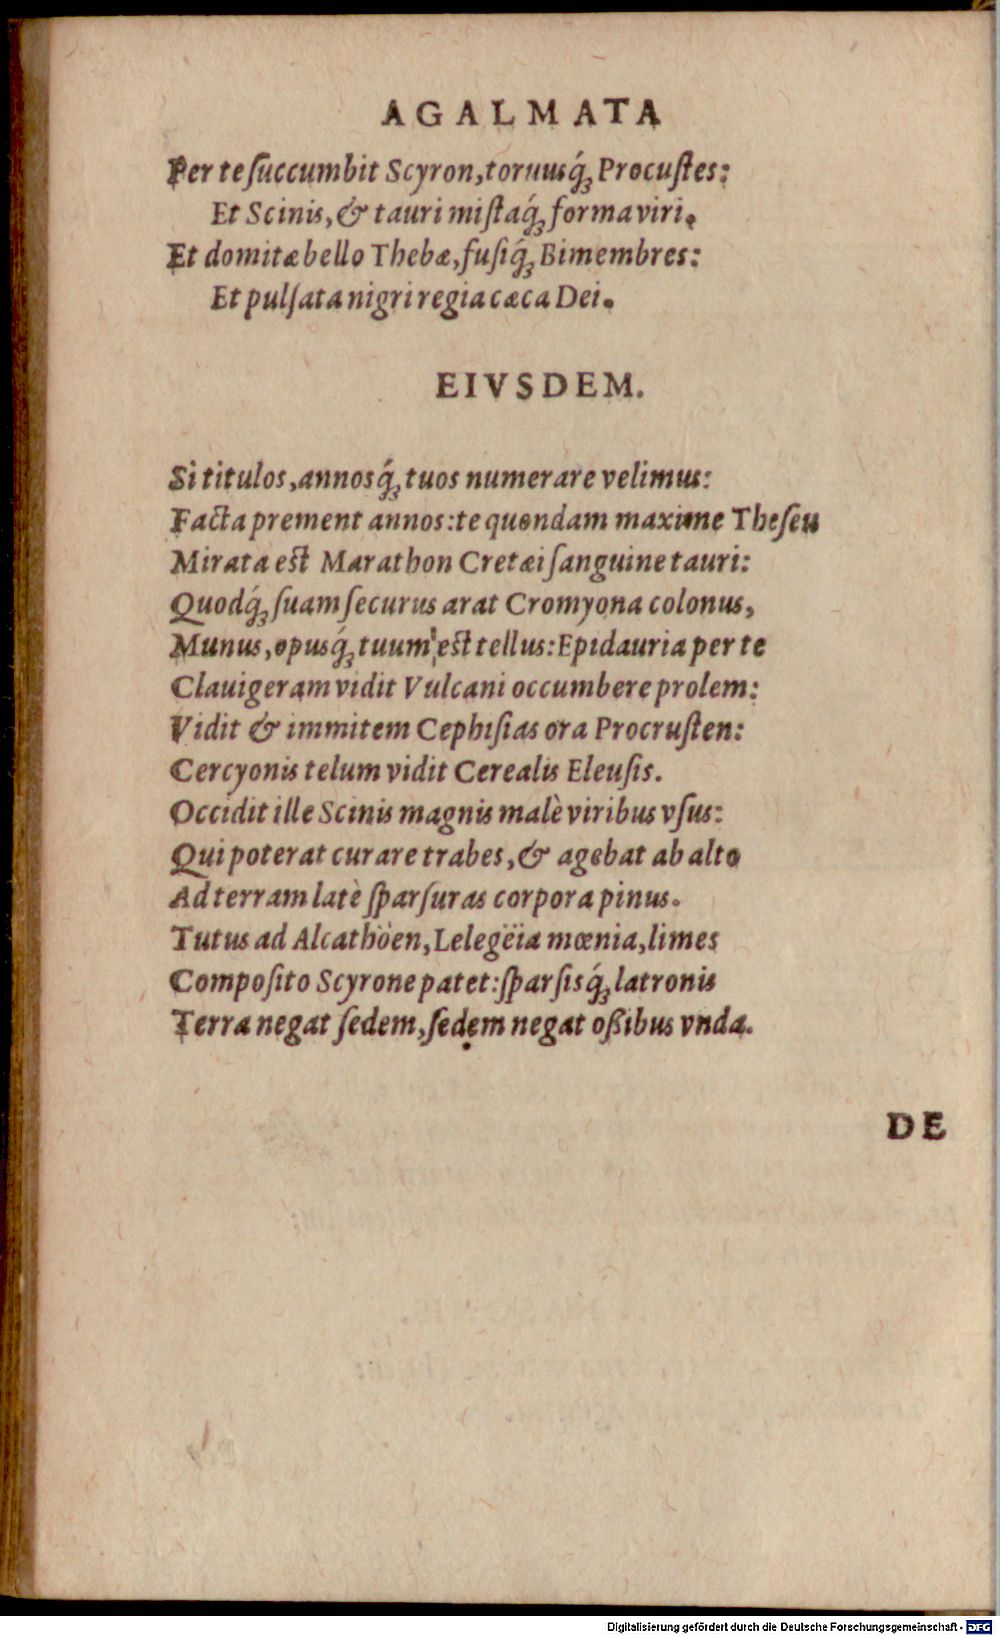 AGALMATA
Per te ſuccumbit Scyron, toruusq́ꝫ Procuſtes:
Et Scinis, & tauri miſtaq́ꝫ forma viri.
Et domitæ bello Thebæ, fuſiq́ꝫ Bimembres:
Et pulſata nigri regia cæca Dei.
EIVSDEM.
Si titulos, annosq́ꝫ tuos numerare velimus:
Facta prement annos: te quondam maxime Theſeu
Mirata est Marathon Cretæi ſanguine tauri:
Quodq́ꝫ ſuam ſecurus arat Cromyona colonus,
Munus, opusq́ꝫ tuum est tellus: Epidauria per te
Clauigeram vidit Vulcani occumbere prolem:
Vidit & immitem Cephiſias ora Procruſten:
Cercyonis telum vidit Cerealis Eleuſis.
Occidit ille Scinis magnis malè viribus vſus:
Qui poterat curare trabes, & agebat ab alto
Ad terram latè ſparſuras corpora pinus.
Tutus ad Alcathöen, Lelegëia mœnia, limes
Compoſito Scyrone patet: ſparſisq́ꝫ latronis
Terra negat ſedem, ſedem negat oßibus vnda.
DE
Digitalisierung gefördert durch die Deutsche Forschungsgemeinschaft - DFG